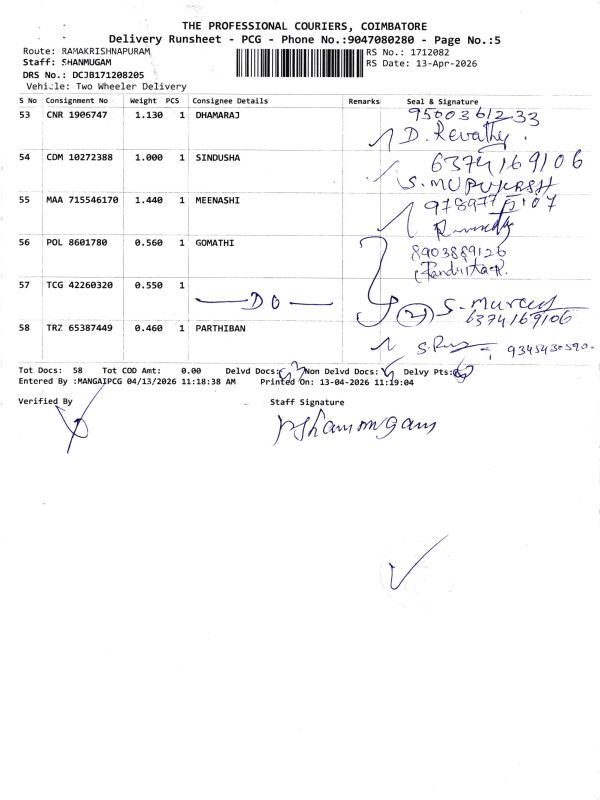 THE PROFESSIONAL COURIERS, COIMBATORE
Delivery Runsheet - PCG - Phone No.:9047080280 - Page No.:5
Route: RAMAKRISHNAPURAM
RS No.: 1712082
Staff: SHANMUGAM
RS Date: 13-Apr-2026
DRS No.: DCJB171208205
Vehicle: Two Wheeler Delivery
S No Consignment No Weight PCS Consignee Details Remarks Seal & Signature
53 CNR 1906747 1.130 1 DHAMARAJ
D. Revathy
54 CDM 10272388 1.000 1 SINDUSHA 6374169106
55 MAA 715546170 1.440 1 MEENASHI
56 POL 8601780 0.560 1 GOMATHI 8903889126
57 TCG 42260320 0.550 1
DO
2 S.
6374169106
58 TRZ 65387449 0.460 1 PARTHIBAN
9345430590
Tot Docs: 58 Tot COD Amt: 0.00 Delvd Docs: Non Delvd Docs: Delvy Pts:
Entered By :MANGAIPCG 04/13/2026 11:18:38 AM Printed On: 13-04-2026 11:19:04
Verified By Staff Signature